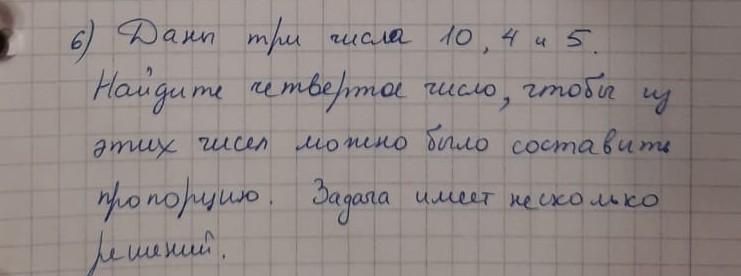 6) Даны три числа 10, 4 и 5.
Найдите четвертое число, чтобы из
этих чисел можно было составить
пропорцию. Задача имеет несколько
решений.